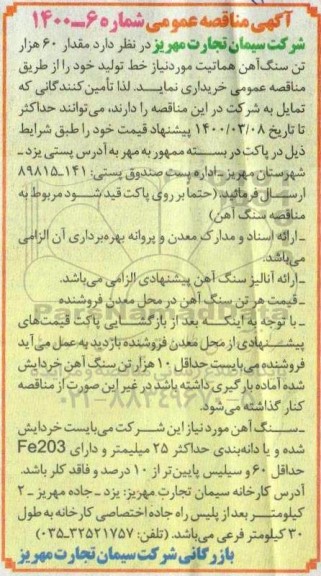 آگهی مناقصه عمومی شماره ۶-۱۴۰۰
شرکت سیمان تجارت مهریز در نظر دارد مقدار ۶۰ هزار
تن سنگ آهن هماتیت موردنیاز خط تولید خود را از طریق
مناقصه عمومی خریداری نمایـد. لذا تأمین‌کنندگانی که
تمایل به شرکت در این مناقصه را دارند، می‌توانند حداکثر
تا تاریخ ۱۴۰۰/۰۳/۰۸ پیشنهاد قیمت خود را طبق شرایط
ذیل در پاکت در بسته ممهور به مهر به آدرس پستی یزد ـ
شهرستان مهریز ـ اداره پست صندوق پستی: ۱۴۱-۸۹۸۱۵
ارسـال فرمائید. (حتما بر روی پاکت قید شـود مربوط به
مناقصه سنگ آهن)
ـ ارائه اسناد و مدارک معدن و پروانه بهره‌برداری آن الزامی
می‌باشد.
ـ ارائه آنالیز سنگ آهن پیشنهادی الزامی می‌باشد.
ـ قیمت هر تن سنگ آهن در محل معدن فروشنده
ـ با توجه به اینکـه بعد از بازگشـایی پاکت قیمت‌های
پیشـنهادی از محل معدن فروشنده بازدید به عمل می‌آید
فروشنده می‌بایست حداقل ۱۰ هزار تن سنگ آهن خردایش
شده آماده بارگیری داشته باشد در غیر این صورت از مناقصه
کنار گذاشته می‌شود.
ـ سـنگ آهن مورد نیاز این شـرکت می‌بایست خردایش
شده و با دانه‌بندی حداکثر ۲۵ میلیمتر و دارای Fe203
حداقل ۶۰ و سیلیس پایین‌تر از ۱۰ درصد و فاقد کلر باشد.
آدرس کارخانه سیمان تجارت مهریز: یزد ـ جاده مهریز ـ ۲
کیلومتـر بعد از پلیس راه جاده اختصاصی کارخانه به طول
۳۰ کیلومتر فرعی می‌باشد. (تلفن: ۳۲۵۲۱۷۵۷-۰۳۵)
بازرگانی شرکت سیمان تجارت مهریز